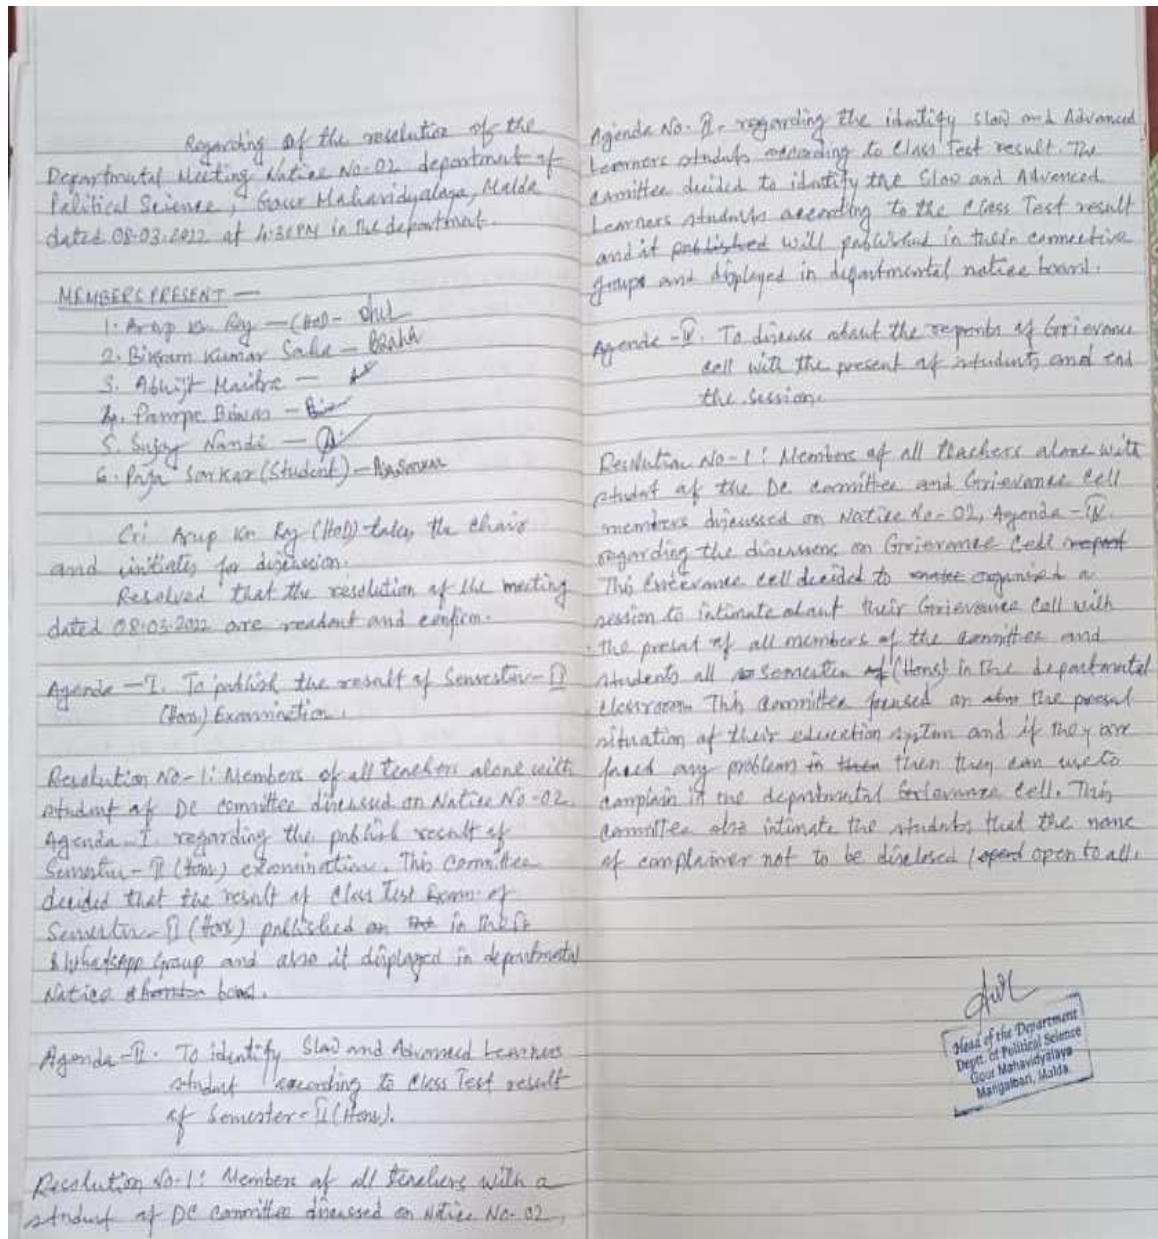 Regarding of the resolution of the
Departmental Meeting Notice No-02 department of
Political Science, Gour Mahavidyalaya, Malda
dated 08.03.2022 at 4:30PM in the department.
MEMBERS PRESENT —
1. Arup Kr Ray — (HoD) -
2. Bikram Kumar Saha — BSaha
3. Abhijit Maitra —
4. Pampa Biswas —
5. Sujay Nandi —
6. Puja Sarkar (Student) — PujaSarkar
Cri Arup Kr Ray (HoD) takes, the chair
and initiates for discussion.
Resolved that the resolution of the meeting
dated 08.03.2022 are readout and confirm.
Agenda — I. To publish the result of Semester - II
(Hons) Examination.
Resolution No-1: Members of all teachers alone with
student of DC committee discussed on Notice No-02.
Agenda - I. regarding the publish result of
Semester - II (Hons) examination. This Committee
decided that the result of Class Test Exam. of
Semester - II (Hons) published on in their
WhatsApp Group and also it displayed in departmental
Notice board.
Agenda - II. To identify Slow and Advanced Learners
student according to Class Test result
of Semester - II (Hons).
Resolution No-1: Members of all teachers with a
student of DC Committee discussed on Notice No-02,
Agenda No. II. regarding the identify slow and Advanced
Learners students according to Class Test result. The
committee decided to identify the Slow and Advanced
Learners students according to the Class Test result
and it published will published in their connective
groups and displayed in departmental notice board.
Agenda - IV. To discuss about the reports of Grievance
cell with the present of students and end
the session.
Resolution No-1: Members of all teachers alone with
student of the DC committee and Grievance Cell
members discussed on Notice No-02, Agenda - IV.
regarding the discussens on Grievance Cell report
This Grievance cell decided to organised a
session to intimate about their Grievance Cell with
the presat of all members of the committee and
students all semester of (Hons) in the departmental
classroom. This Committee focused on the presat
situation of their education system and if they are
faced any problem in then they can to
complain in the departmental Grievance Cell. This
committee also intimate the students that the name
of complainer not to be disclosed / open to all.
Head of the Department
Deptt. of Political Science
Gour Mahavidyalaya
Mangalbari, Malda